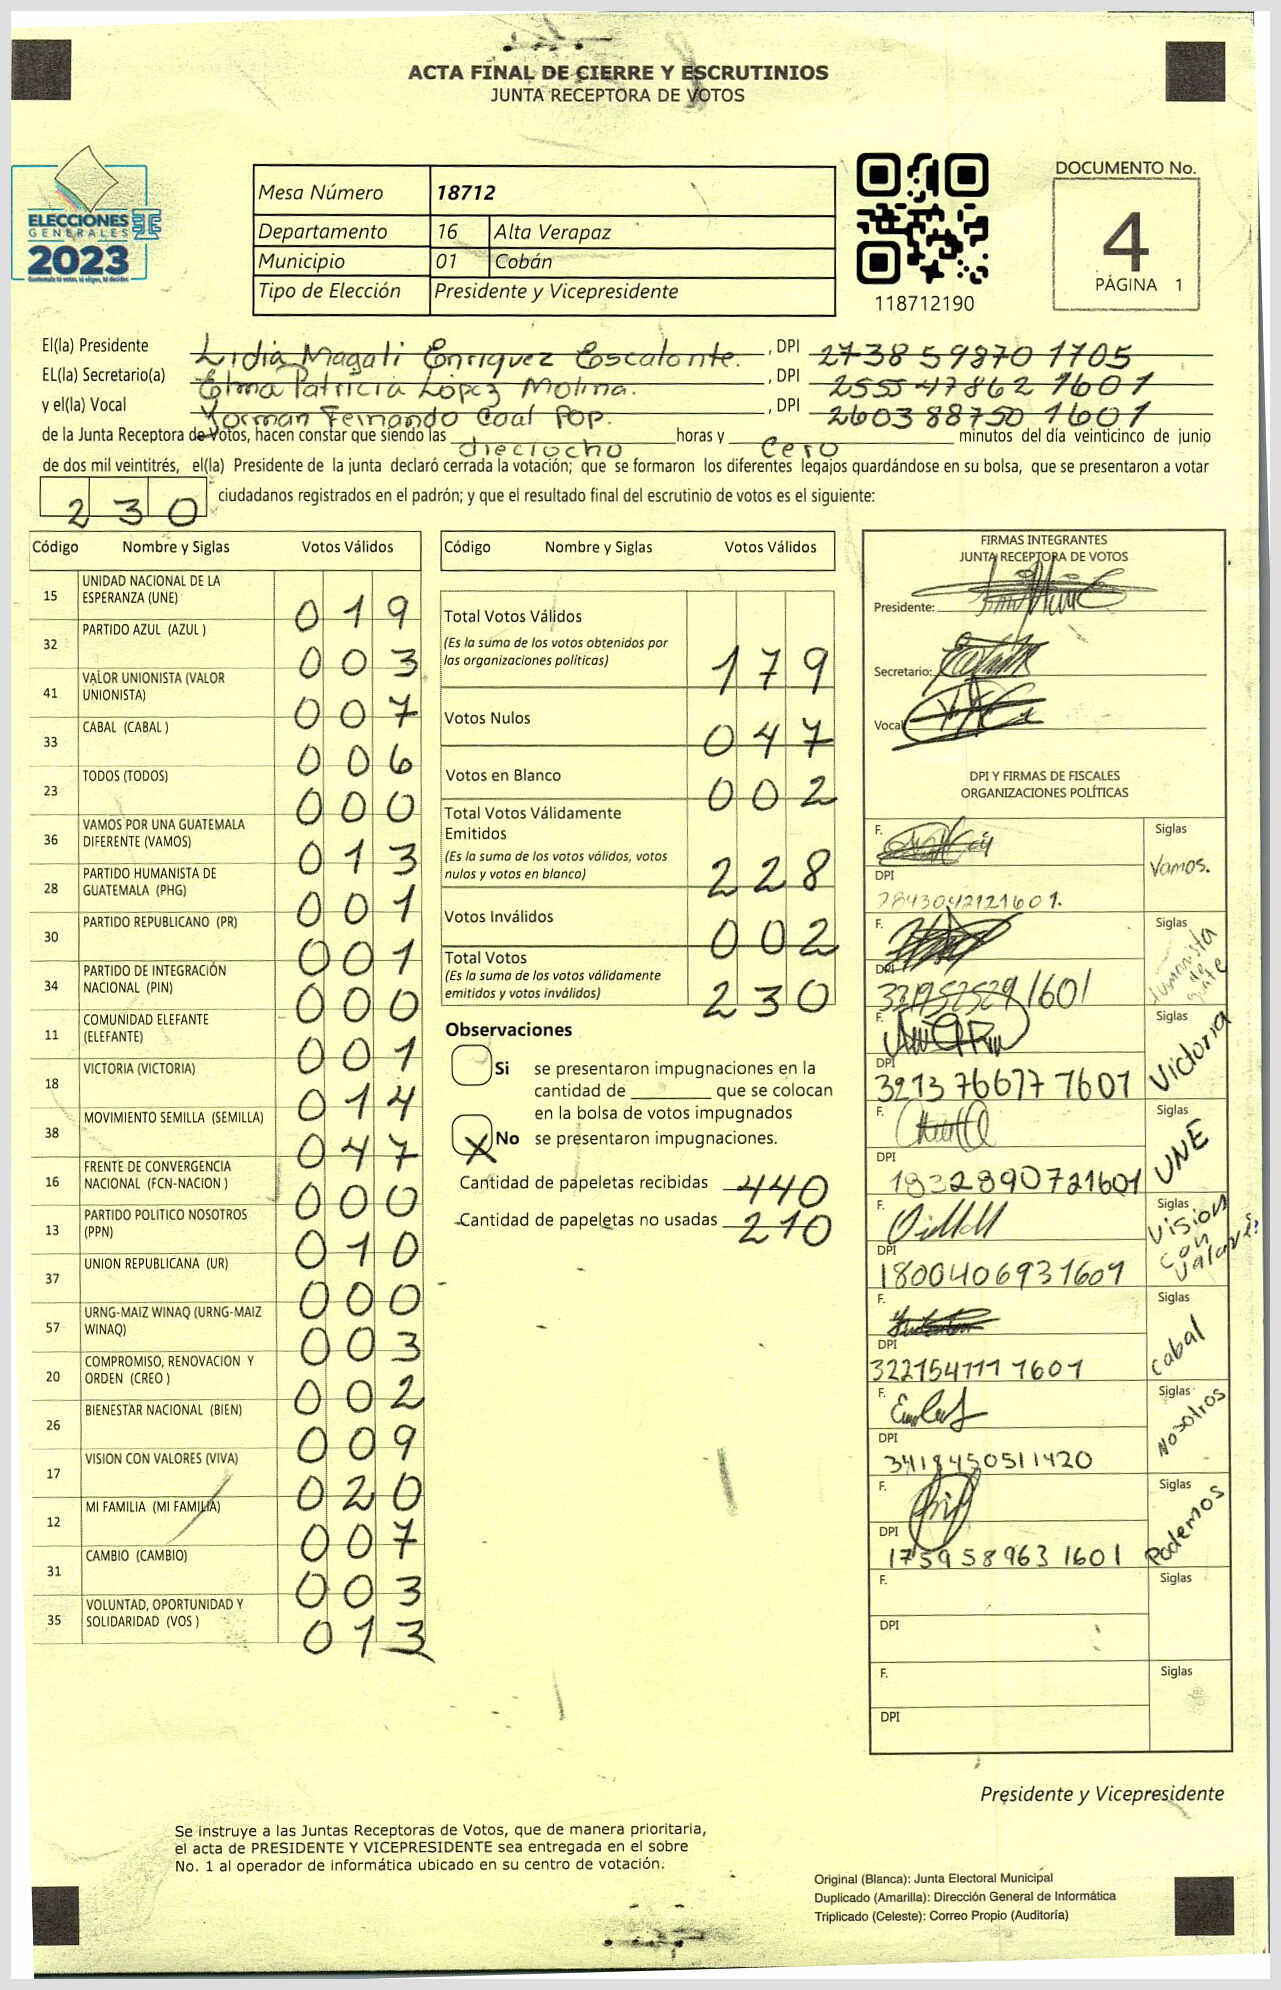 ACTA FINAL DE CIERRE Y ESCRUTINIOS
JUNTA RECEPTORA DE VOTOS
ELECCIONES
GENERALES
2023
Mesa Número 18712
Departamento 16 Alta Verapaz
Municipio 01 Cobán
Tipo de Elección Presidente y Vicepresidente
118712190
DOCUMENTO No.
4
PÁGINA 1
El(la) Presidente Lidia Magali Enriquez Escalante. , DPI 2738598701705
EL(la) Secretario(a) Elma Patricia López Molina. , DPI 2555478621601
y el(la) Vocal Yorman Fernando Caal Pop. , DPI 2603887501601
de la Junta Receptora de Votos, hacen constar que siendo las dieciocho horas y cero minutos del día veinticinco de junio
de dos mil veintitrés, el(la) Presidente de la junta declaró cerrada la votación; que se formaron los diferentes legajos guardándose en su bolsa, que se presentaron a votar
230 ciudadanos registrados en el padrón; y que el resultado final del escrutinio de votos es el siguiente:
Código Nombre y Siglas Votos Válidos
15 UNIDAD NACIONAL DE LA ESPERANZA (UNE) 019
32 PARTIDO AZUL (AZUL ) 003
41 VALOR UNIONISTA (VALOR UNIONISTA) 007
33 CABAL (CABAL ) 006
23 TODOS (TODOS) 000
36 VAMOS POR UNA GUATEMALA DIFERENTE (VAMOS) 013
28 PARTIDO HUMANISTA DE GUATEMALA (PHG) 001
30 PARTIDO REPUBLICANO (PR) 001
34 PARTIDO DE INTEGRACIÓN NACIONAL (PIN) 000
11 COMUNIDAD ELEFANTE (ELEFANTE) 001
18 VICTORIA (VICTORIA) 014
38 MOVIMIENTO SEMILLA (SEMILLA) 047
16 FRENTE DE CONVERGENCIA NACIONAL (FCN-NACION ) 000
13 PARTIDO POLITICO NOSOTROS (PPN) 010
37 UNION REPUBLICANA (UR) 000
57 URNG-MAIZ WINAQ (URNG-MAIZ WINAQ) 003
20 COMPROMISO, RENOVACION Y ORDEN (CREO ) 002
26 BIENESTAR NACIONAL (BIEN) 009
17 VISION CON VALORES (VIVA) 020
12 MI FAMILIA (MI FAMILIA) 007
31 CAMBIO (CAMBIO) 003
35 VOLUNTAD, OPORTUNIDAD Y SOLIDARIDAD (VOS ) 013
Código Nombre y Siglas Votos Válidos
Total Votos Válidos 179
(Es la suma de los votos obtenidos por
las organizaciones políticas)
Votos Nulos 047
Votos en Blanco 002
Total Votos Válidamente
Emitidos 228
(Es la suma de los votos válidos, votos
nulos y votos en blanco)
Votos Inválidos 002
Total Votos 230
(Es la suma de los votos válidamente
emitidos y votos inválidos)
Observaciones
Si se presentaron impugnaciones en la
cantidad de ________ que se colocan
en la bolsa de votos impugnados
X No se presentaron impugnaciones.
Cantidad de papeletas recibidas 440
Cantidad de papeletas no usadas 210
FIRMAS INTEGRANTES
JUNTA RECEPTORA DE VOTOS
Presidente:
Secretario:
Vocal
DPI Y FIRMAS DE FISCALES
ORGANIZACIONES POLÍTICAS
F. Siglas
Vamos.
DPI
2843042121601.
F. Siglas
Humanista de guate
DPI
3219525291601
F. Siglas
Victoria
DPI
3213766771601
F. Siglas
UNE
DPI
1832890721601
F. Siglas
Vision con valores
DPI
1800406931601
F. Siglas
Cabal
DPI
3221541111601
F. Siglas
Nosotros
DPI
3418450511420
F. Siglas
Podemos
DPI
1759589631601
F. Siglas
DPI
F. Siglas
DPI
Presidente y Vicepresidente
Se instruye a las Juntas Receptoras de Votos, que de manera prioritaria,
el acta de PRESIDENTE Y VICEPRESIDENTE sea entregada en el sobre
No. 1 al operador de informática ubicado en su centro de votación.
Original (Blanca): Junta Electoral Municipal
Duplicado (Amarilla): Dirección General de Informática
Triplicado (Celeste): Correo Propio (Auditoría)